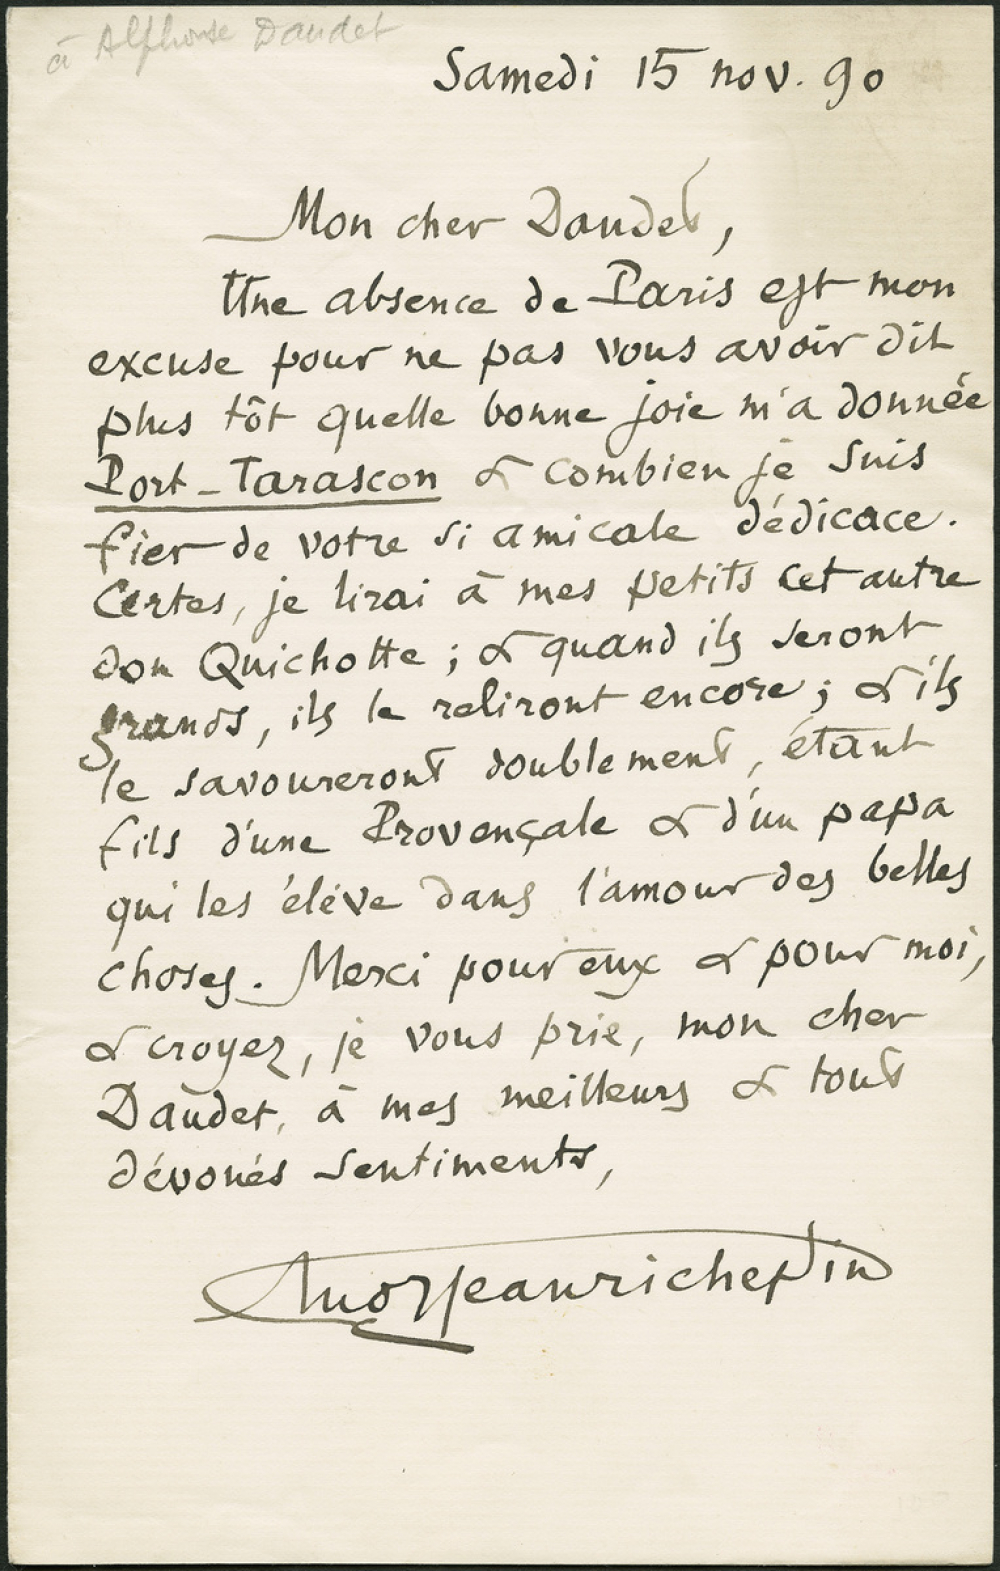 à Alphonse Daudet
Samedi 15 nov. 90
Mon cher Daudet,
Une absence de Paris est mon
excuse pour ne pas vous avoir dit
plus tôt quelle bonne joie m'a donnée
Port-Tarascon & combien je suis
fier de votre si amicale dédicace.
Certes, je lirai à mes petits cet autre
don Quichotte ; & quand ils seront
grands, ils le reliront encore ; & ils
le savoureront doublement, étant
fils d'une Provençale & d'un papa
qui les élève dans l'amour des belles
choses. Merci pour eux & pour moi,
& croyez, je vous prie, mon cher
Daudet, à mes meilleurs & tout
dévoués sentiments,
jeanrichepin